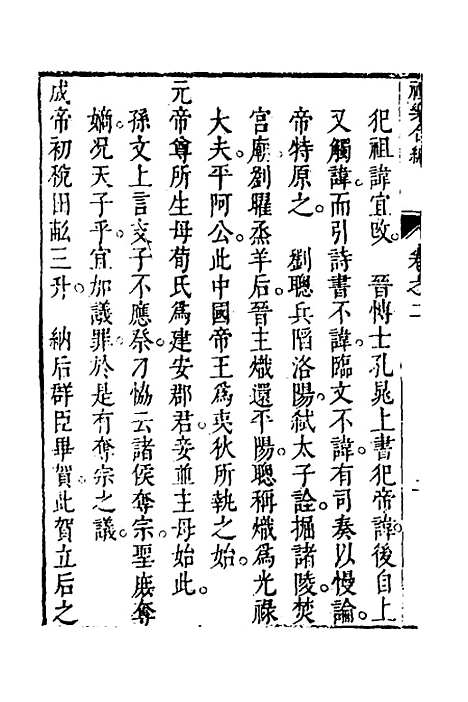 禮樂合編 卷之二
犯祖諱宜改。 晉博士孔晁上書犯帝諱。後自上
又觸諱。而引詩書不諱。臨文不諱。有司奏以慢論。
帝特原之。 劉聰兵陷洛陽。弑太子詮。掘諸陵。焚
宮廟。劉曜烝羊后。晉主熾還平陽。聰稱熾爲光祿
大夫。平阿公。此中國帝王爲夷狄所執之始。
元帝尊所生母荀氏爲建安郡君。妾並主母始此。
孫文上言。支子不應祭。刁恊云。諸侯奪宗。聖庻奪
嫡。况天子乎。宜加議罪。於是有奪宗之議。
成帝初稅田畝三升 納后群臣畢賀。此賀立后之